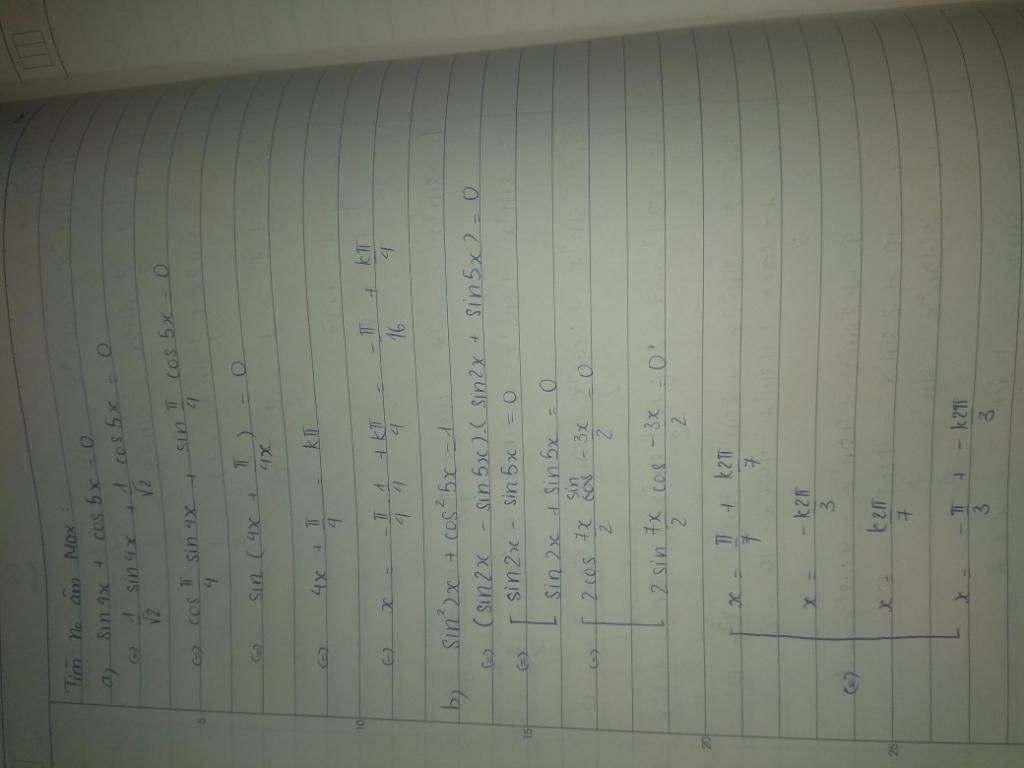 Tìm n₀ âm Max:
a) sin4x + cos5x = 0
(=) 1/√2 sin4x + 1/√2 cos5x = 0
(=) cos π/4 sin4x + sin π/4 cos5x = 0
5
(=) sin (4x + π/4x) = 0
(=) 4x + π/4 = kπ
10
(=) x = -π/4 · 1/4 + kπ/4 = -π/16 + kπ/4
b) sin²2x + cos²5x = 1
(=) (sin2x - sin5x)(sin2x + sin5x) = 0
15
(=) [ sin2x - sin5x = 0
sin2x + sin5x = 0
(=) [ 2cos 7x/2 sin -3x/2 = 0
2 sin 7x/2 cos -3x/2 = 0
20
x = π/7 + k2π/7
x = -k2π/3
(=) [ x = k2π/7
25
x = -π/3 + -k2π/3